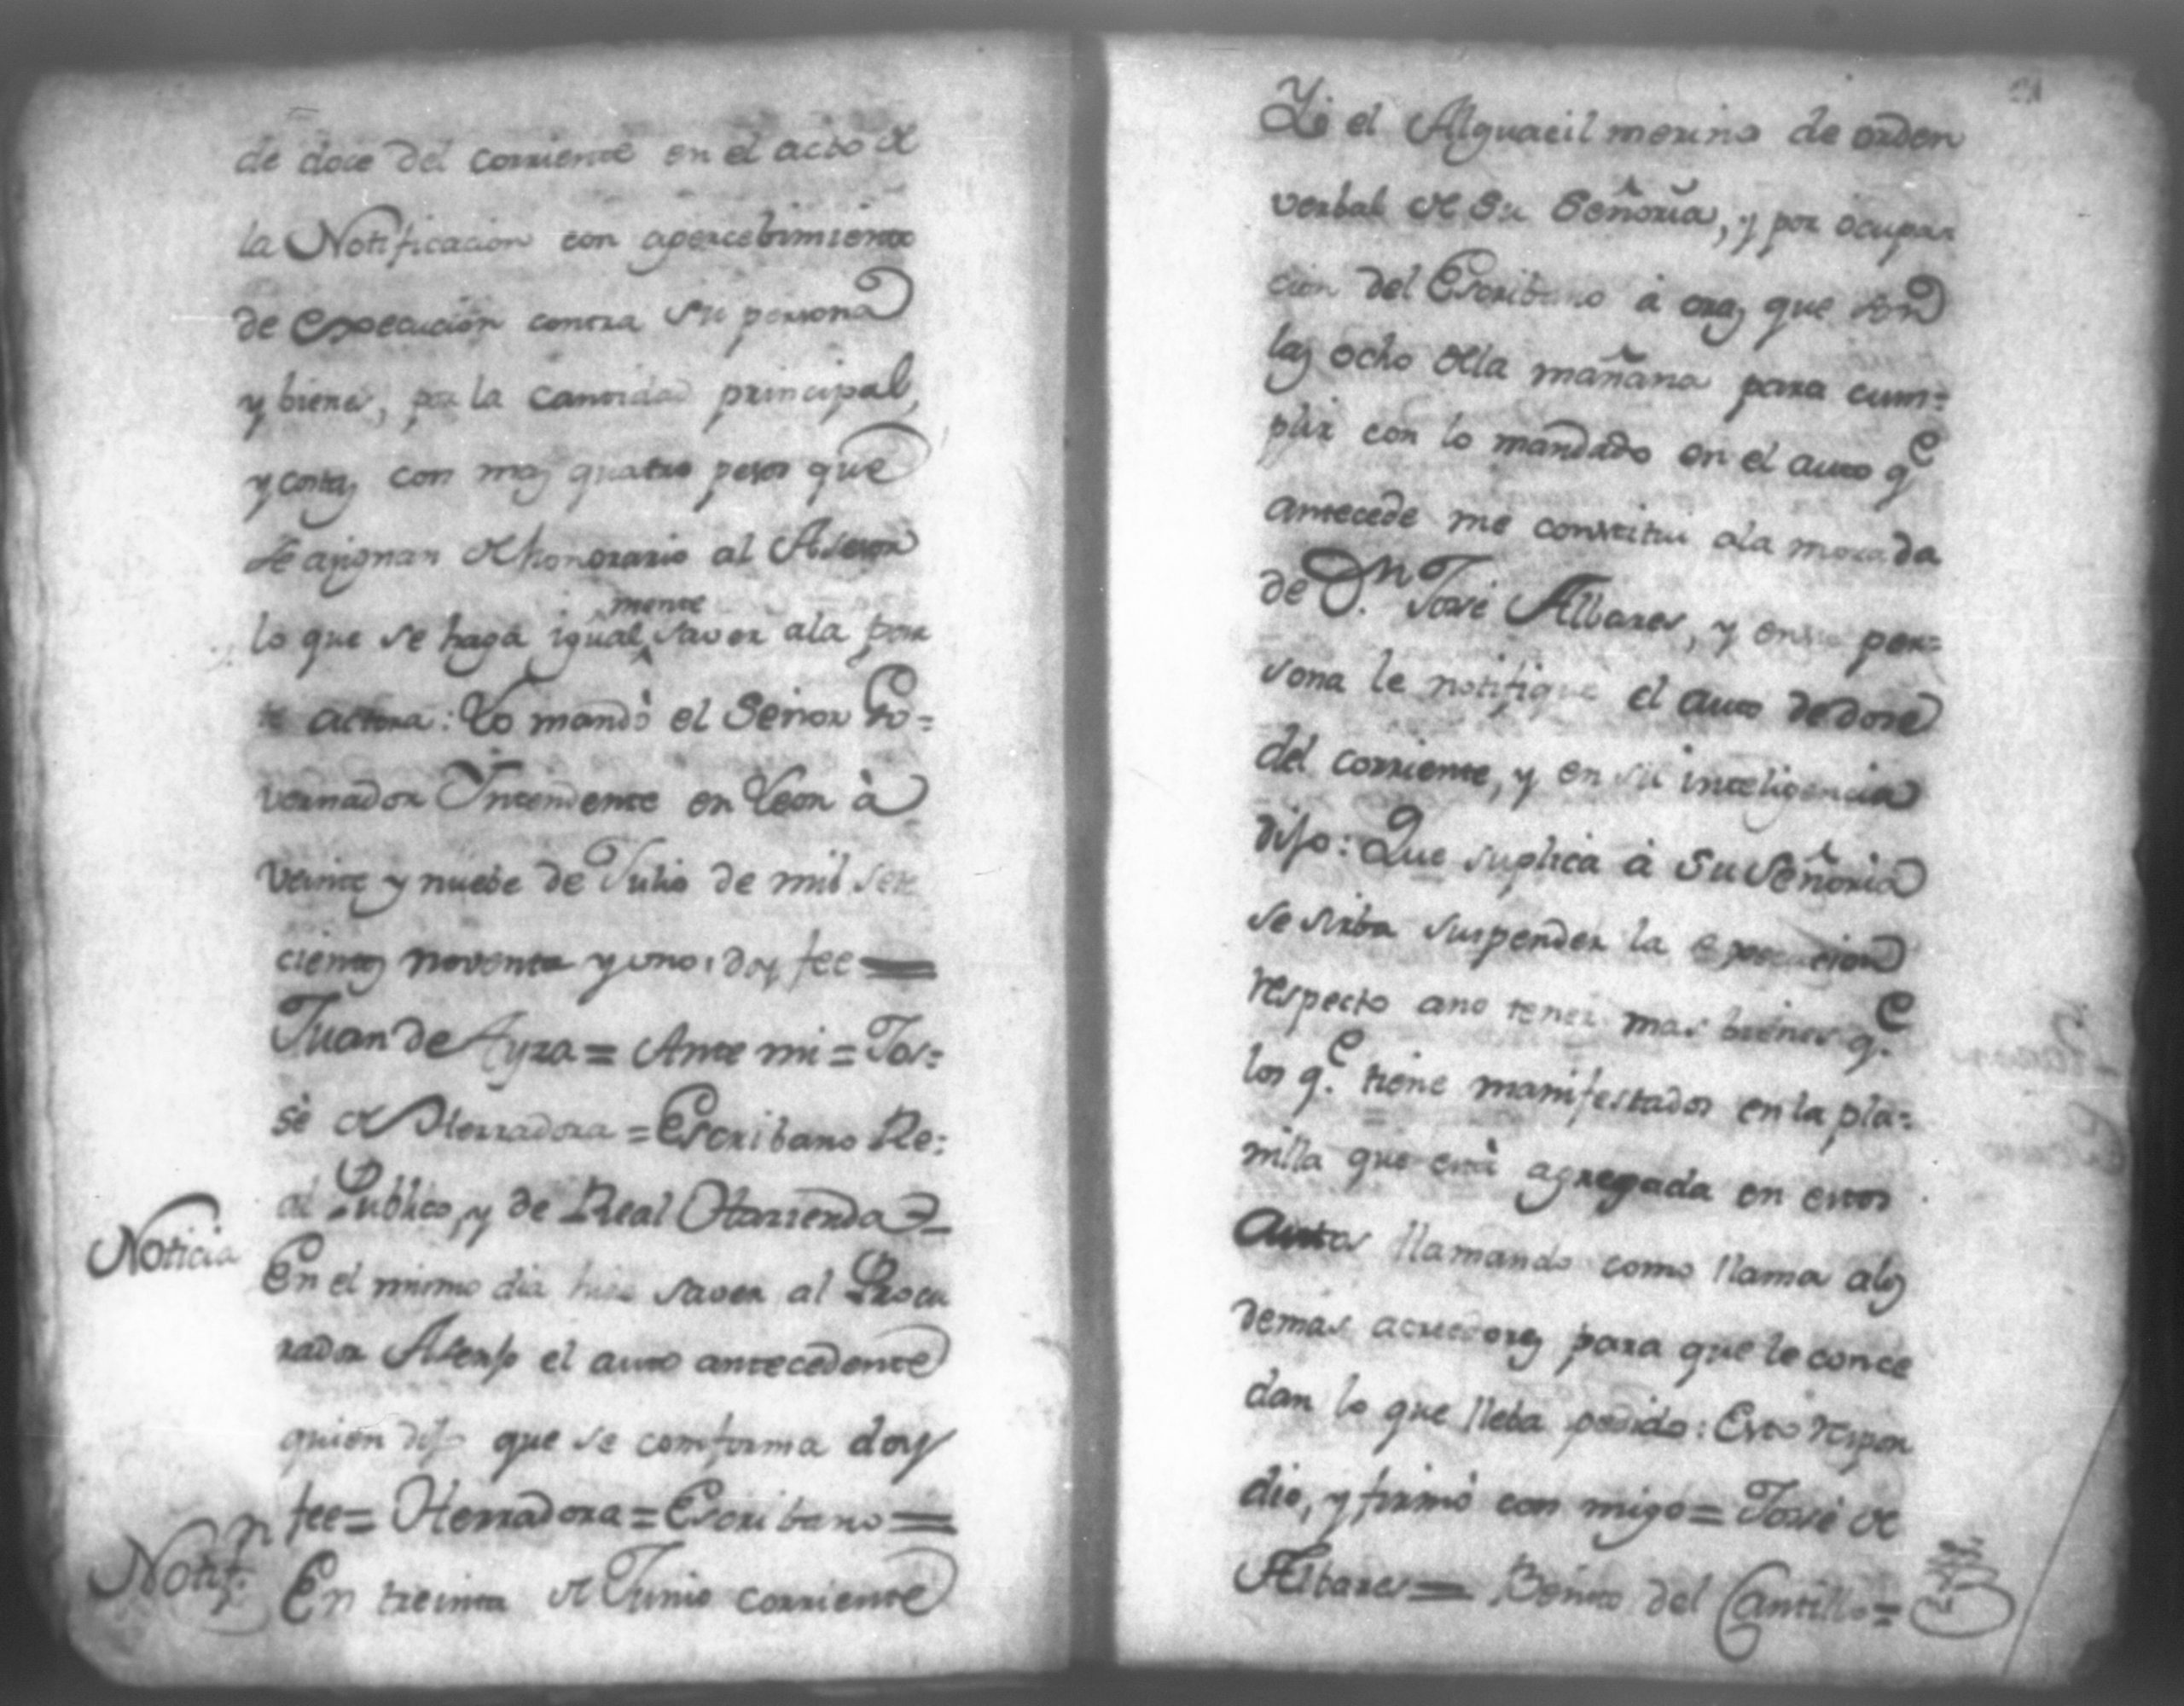 de doce del corriente en el acto de
la Notificacion con apercebimiento
de execucion contra su persona
y bienes, por la cantidad principal,
y costas con mas quatro pesos que
se asignan de honorario al Asesor
lo que se haga igual^mente saver ala par
te actora: Lo mandò el Señor Go=
vernador Intendente en Leon à
veinte y nuebe de Julio de mil sete
cientos noventa y uno: doy fee =
Juan de Ayza = Ante mi = Jos=
sè de Herradora = Escribano Re=
al Publico, y de Real Hazienda =
Noticia
En el mismo dia hise saver al Procu
rador Asenso el auto antecedente
quien dijo que se comforma doy
fee = Herradora = Escribano =
Notif.n
En treinta de Junio corriente
21
Yo el Alguacil merino de orden
verbal de Su Señoria, y por ocupa
cion del Escribano à oras que son
las ocho dela mañana para cum=
plir con lo mandado en el auto q.e
antecede me constitui ala morada
de D.n José Albares, y en su per=
sona le notifique el auto de dose
del corriente, y en su inteligencia
dijo: Que suplica à Su Señoria
se sirba suspender la execucion
respecto ano tener mas bienes q.e
los q.e tiene manifestados en la pla=
nilla que està agregada en estos
Autos llamando como llama alos
demas acreedores para que le conce
dan lo que lleba pedido: Esto respon
dio, y firmò con migo = José de
Albares = Benito del Cantillo =